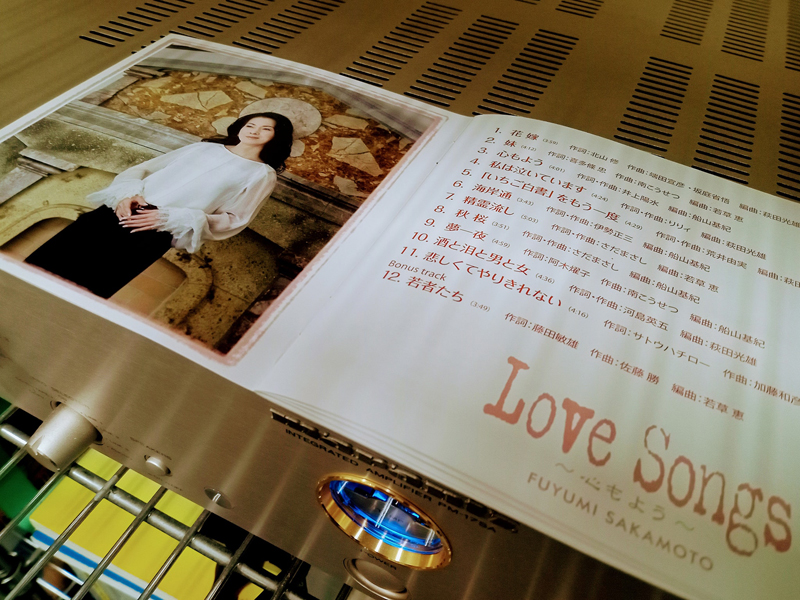 1. 花嫁 (3:59) 作詞:北山 修 作曲:端田宣彦・坂庭省悟 編曲:萩田光雄
2. 妹 (4:12) 作詞:喜多條 忠 作曲:南こうせつ 編曲:若草 恵
3. 心もよう (4:01) 作詞・作曲:井上陽水 編曲:船山基紀
4. 私は泣いています (4:04) 作詞・作曲:りりィ 編曲:萩田光雄
5. 「いちご白書」をもう一度 (4:29) 作詞・作曲:荒井由実 編曲:萩田
6. 海岸通 (3:43) 作詞・作曲:伊勢正三 編曲:船山基紀
7. 精霊流し (5:03) 作詞・作曲:さだまさし 編曲:若草 恵
8. 秋桜 (3:51) 作詞・作曲:さだまさし 編曲:船山基紀
9. 夢一夜 (4:59) 作詞:阿木燿子 作曲:南こうせつ 編曲:船山基紀
10. 酒と泪と男と女 (4:36) 作詞・作曲:河島英五 編曲:萩田光雄
11. 悲しくてやりきれない (4:16) 作詞:サトウハチロー 作曲:加藤和彦
Bonus track
12. 若者たち (3:49) 作詞:藤田敏雄 作曲:佐藤 勝 編曲:若草 恵
Love Songs
～心もよう～
FUYUMI SAKAMOTO
INTEGRATED AMPLIFIER PM 17SA